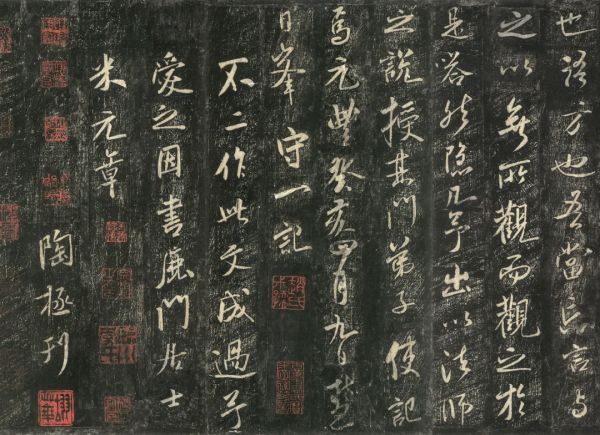 也語方也吾當忘言与
之以無所觀而觀之於
是嗒然隱几予出以法師
之說授其門弟子使記
焉元豊癸亥四月九日慧
日峯守一記
不二作此文成過予
愛之因書鹿門居士
米元章
陶拯刊